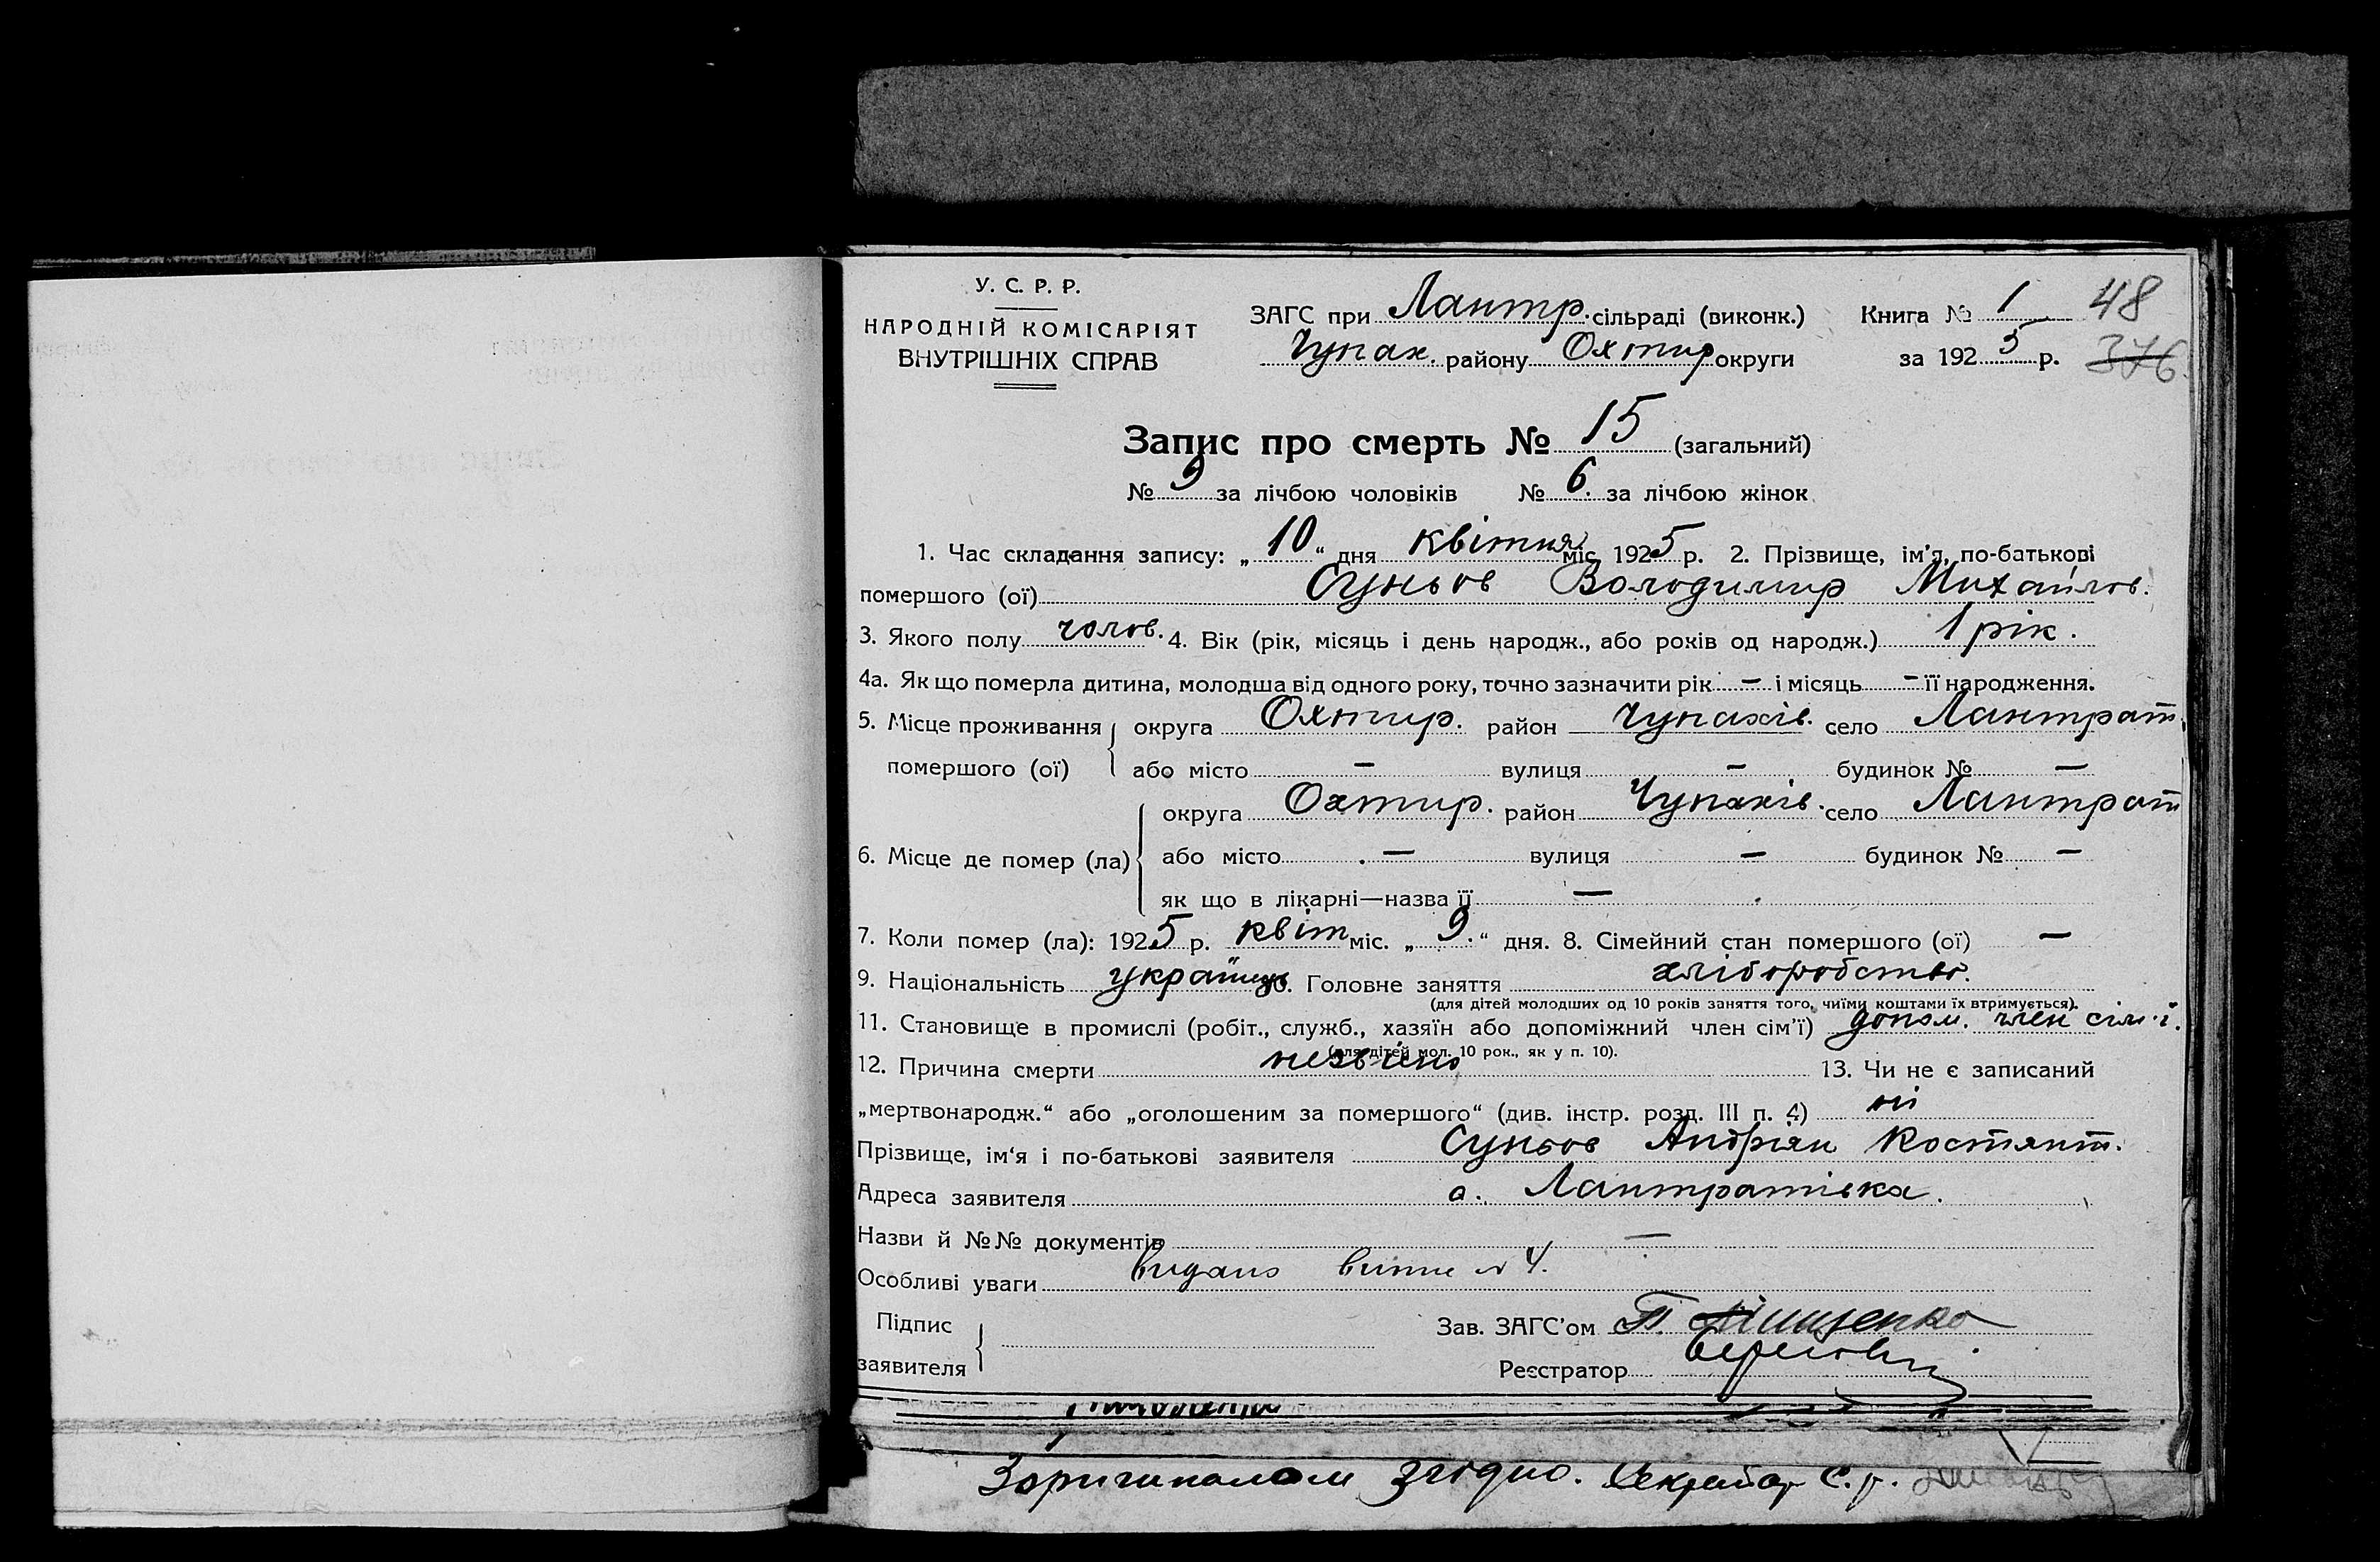 У. С. Р. Р.
НАРОДНІЙ КОМІСАРІЯТ
ВНУТРІШНІХ СПРАВ
ЗАГС при Лантр. сільраді (виконк.) Книга № 1 48
Чупах. району Охтир округи за 1925 р. 376.
Запис про смерть № 15 (загальний)
№ 9 за лічбою чоловіків № 6. за лічбою жінок
1. Час складання запису: „ 10 “ дня квітня міс. 1925 р. 2. Прізвище, ім’я, по-батькові
помершого (ої) Суньов Володимир Михайлов.
3. Якого полу чолов. 4. Вік (рік, місяць і день народж., або років од народж.) 1 рік.
4а. Як що померла дитина, молодша від одного року, точно зазначити рік — і місяць — її народження.
5. Місце проживання округа Охтир. район Чупахів. село Лантрат.
помершого (ої) або місто — вулиця — будинок № —
округа Охтир. район Чупахів. село Лантрат
6. Місце де помер (ла) або місто — вулиця — будинок № —
як що в лікарні—назва її —
7. Коли помер (ла): 1925 р. квіт міс. „ 9. “ дня. 8. Сімейний стан помершого (ої) —
9. Національність українць 10. Головне заняття хліборобство.
(для дітей молодших од 10 років заняття того, чиїми коштами їх втримується).
11. Становище в промислі (робіт., служб., хазяїн або допоміжний член сім’ї) допом. член сім’ї.
(для дітей мол. 10 рок., як у п. 10).
12. Причина смерти незвісно 13. Чи не є записаний
„мертвонародж.“ або „оголошеним за помершого“ (див. інстр. розд. III п. 4) ні
Прізвище, ім‘я і по-батькові заявителя Суньов Андріян Костянт.
Адреса заявителя с. Лантратівка.
Назви й №№ документів —
Особливі уваги видано № 4.
Підпис
заявителя
Зав. ЗАГС’ом П.
Реєстратор
Зоригиналом згідно. Секратар С. р.